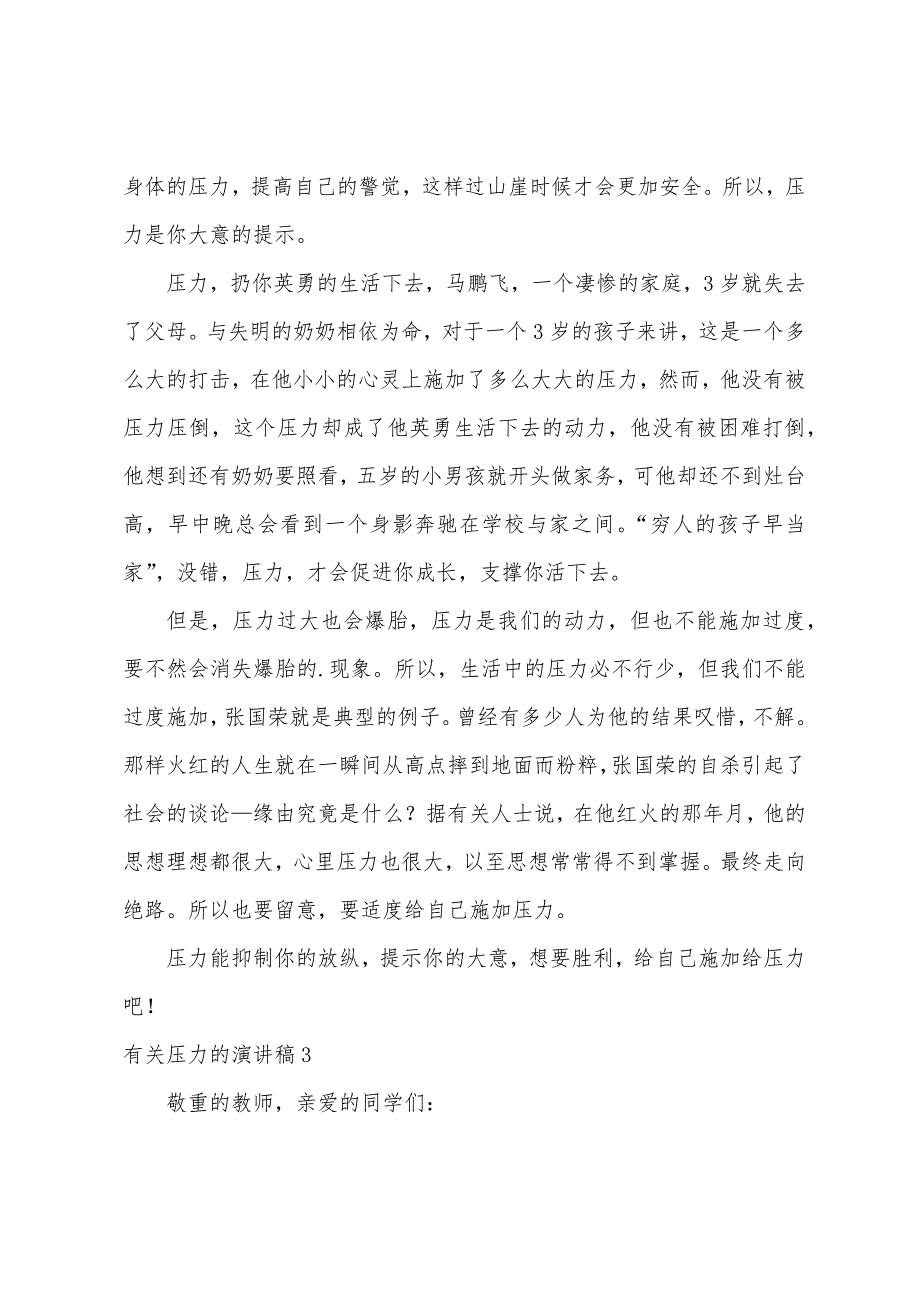 身体的压力，提高自己的警觉，这样过山崖时候才会更加安全。所以，压
力是你大意的提示。
压力，扔你英勇的生活下去，马鹏飞，一个凄惨的家庭，3 岁就失去
了父母。与失明的奶奶相依为命，对于一个 3 岁的孩子来讲，这是一个多
么大的打击，在他小小的心灵上施加了多么大大的压力，然而，他没有被
压力压倒，这个压力却成了他英勇生活下去的动力，他没有被困难打倒，
他想到还有奶奶要照看，五岁的小男孩就开头做家务，可他却还不到灶台
高，早中晚总会看到一个身影奔驰在学校与家之间。“穷人的孩子早当
家”，没错，压力，才会促进你成长，支撑你活下去。
但是，压力过大也会爆胎，压力是我们的动力，但也不能施加过度，
要不然会消失爆胎的.现象。所以，生活中的压力必不行少，但我们不能
过度施加，张国荣就是典型的例子。曾经有多少人为他的结果叹惜，不解。
那样火红的人生就在一瞬间从高点摔到地面而粉粹，张国荣的自杀引起了
社会的谈论—缘由究竟是什么？据有关人士说，在他红火的那年月，他的
思想理想都很大，心里压力也很大，以至思想常常得不到掌握。最终走向
绝路。所以也要留意，要适度给自己施加压力。
压力能抑制你的放纵，提示你的大意，想要胜利，给自己施加给压力
吧！
有关压力的演讲稿 3
敬重的教师，亲爱的同学们：